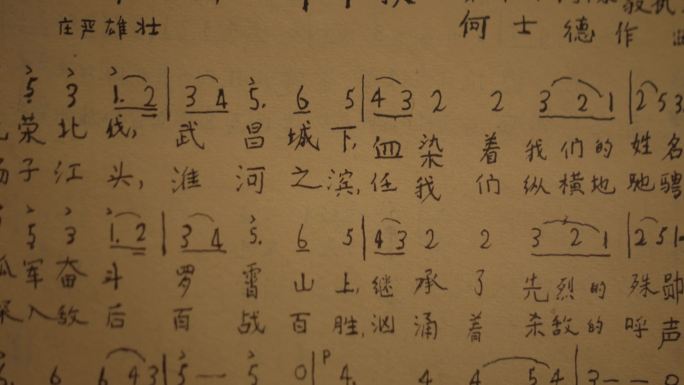 庄严雄壮
何士德作
5 3 1. 2 | 3 4 5. 6 5 | 4 3 2 2 3 2 1 | 2 5 3
荣北伐, 武昌城下, 血染着我们的姓名
子江头, 淮河之滨, 任我们纵横地驰骋
5 3 1. 2 | 3 4 5. 6 5 | 4 3 2 2 3 2 1 | 2 5 1
军奋斗 罗霄山上, 继承了先烈的殊勋
入敌后 百战百胜, 汹涌着杀敌的呼声
6 6 4 3 | 5 — 5 0 | P 4. 4 4 5 4 | 3 — — 0